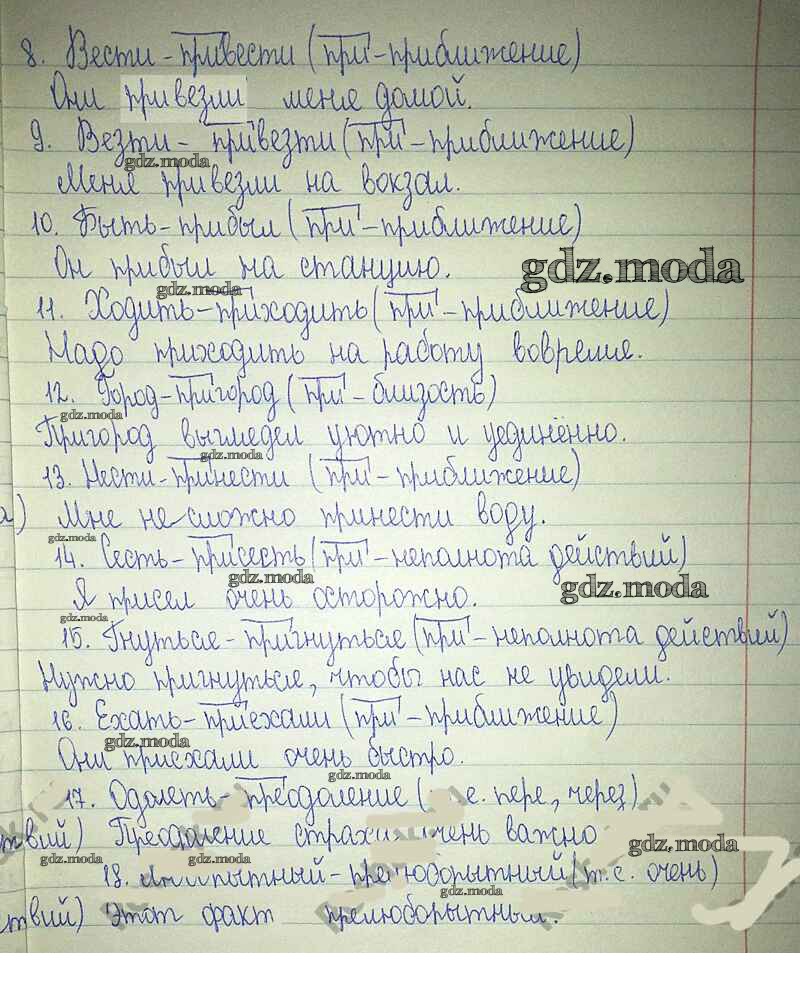 8. Вести - привести (при - приближение)
Они привезли меня домой.
9. Везти - привезти (при - приближение)
gdz.moda
Меня привезли на вокзал.
10. Быть - прибыл (при - приближение)
Он прибыл на станцию.
gdz.moda
gdz.moda
11. Ходить - приходить (при - приближение)
Надо приходить на работу вовремя.
12. Город - пригород (при - близость)
gdz.moda
Пригород выглядел уютно и уединённо.
gdz.moda
13. Нести - принести (при - приближение)
а) Мне не сложно принести воду.
gdz.moda
14. Сесть - присесть (при - неполнота действий)
gdz.moda
gdz.moda
Я присел очень осторожно.
gdz.moda
15. Гнуться - пригнуться (при - неполнота действий)
Нужно пригнуться, чтобы нас не увидели.
16. Ехать - приехали (при - приближение)
gdz.moda
Они приехали очень быстро.
gdz.moda
17. Одолеть - преодоление ( е. пере, через)
твий) Преодоление страха очень важно
gdz.moda
gdz.moda
gdz.moda
18. пытный - прелюборытный (т.е. очень)
ствий) Этот факт прелюборытным.